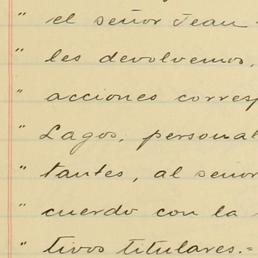 " el señor Jean
" les devolvemos,
" acciones corresp
" Lagos, personal
" tantes, al señor
" cuerdo con la
" tivos titulares.=